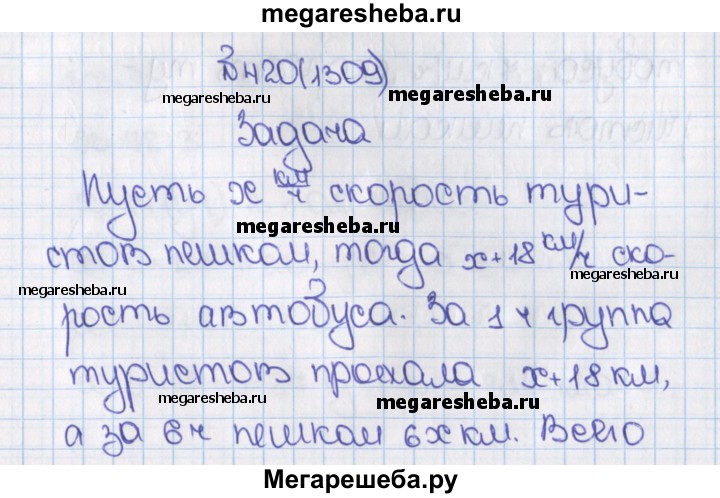 megaresheba.ru
№420(1309)
megaresheba.ru
megaresheba.ru
Задача
megaresheba.ru
Пусть x км/ч скорость тури-
megaresheba.ru
стов пешком, тогда x+18 км/ч ско-
megaresheba.ru
megaresheba.ru
рость автобуса. За 1 ч группа
туристов проехала x+18 км,
megaresheba.ru
megaresheba.ru
а за 6ч пешком 6x км. Всего
Мегарешеба.ру